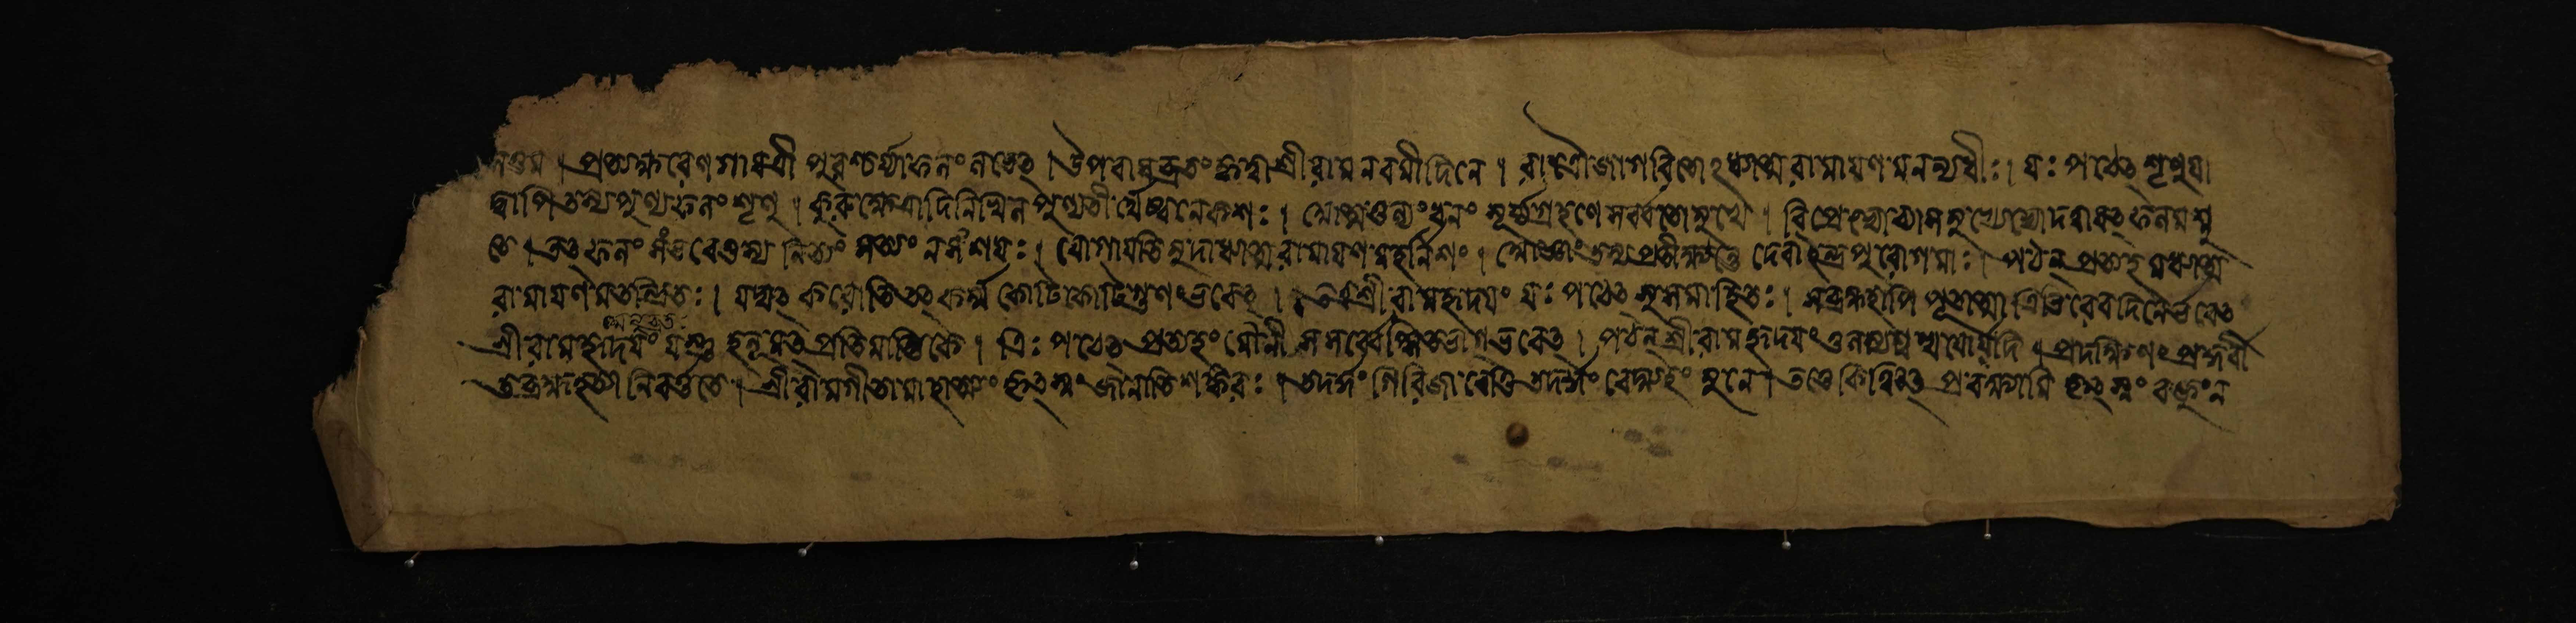 সত্তম । প্রত্যক্ষরেণ গায়ত্রী পুরশ্চর্য্যাফলং লভেৎ । উপবাসব্রতং কৃত্বা শ্রীরামনবমীদিনে । রাত্রৌ জাগরিতোঽধ্যাত্মরামায়ণমনন্যধীঃ । যঃ পঠেৎ শৃণুয়া
দ্বাপি তস্য পুণ্যফলং শৃণু । কুরুক্ষেত্রাদিনিখিলপুণ্যতীর্থেষ্বনেকশঃ । আত্মতুল্যং ধনং সূর্য্যগ্রহণে সর্ব্বতোমুখে । বিপ্রেভ্যো ব্যাসমুখ্যেভ্যো দত্বা যৎ ফলমশ্নু
তে । তৎ ফলং সংভবেত্তস্য নিত্যং সত্যং ন সংশয়ঃ । যো গায়তি মুদাধ্যাত্মরামায়ণমহর্নিশং । আজ্ঞাং তস্য প্রতীক্ষন্তে দেবা ইন্দ্রপুরোগমাঃ । পঠন্ প্রত্যহমধ্যাত্ম
রামায়ণমতন্দ্রিতঃ । যদ্যৎ করোতি তৎ কর্ম্ম কোটিকোটিগুণং ভবেৎ । তত্র শ্রীরামহৃদয়ং যঃ পঠেৎ সুসমাহিতঃ । সব্রহ্মহাপি পূতাত্মা ত্রিভিরেব দিনৈর্ভবেৎ
শ্রীরামহৃদয়ং যস্তু হনূমৎপ্রতিমান্তিকে । ত্রিঃ পঠেৎ প্রত্যহং মৌনী স সর্ব্বেপ্সিতভাগ্ভবেৎ । পঠন্ শ্রীরামহৃদয়ং তুলস্যশ্বত্থয়োর্যদি । প্রদক্ষিণং প্রকুর্বী
ত ব্রহ্মহত্যা নিবর্ত্ততে । শ্রীরামগীতামাহাত্ম্যং কৃৎস্নং জানাতি শঙ্করঃ । তদর্দ্ধং গিরিজা বেত্তি তদর্দ্ধং বেদ্ম্যহং মুনে । তত্তে কিঞ্চিৎ প্রবক্ষ্যামি কৃৎস্নং বক্তুং ন